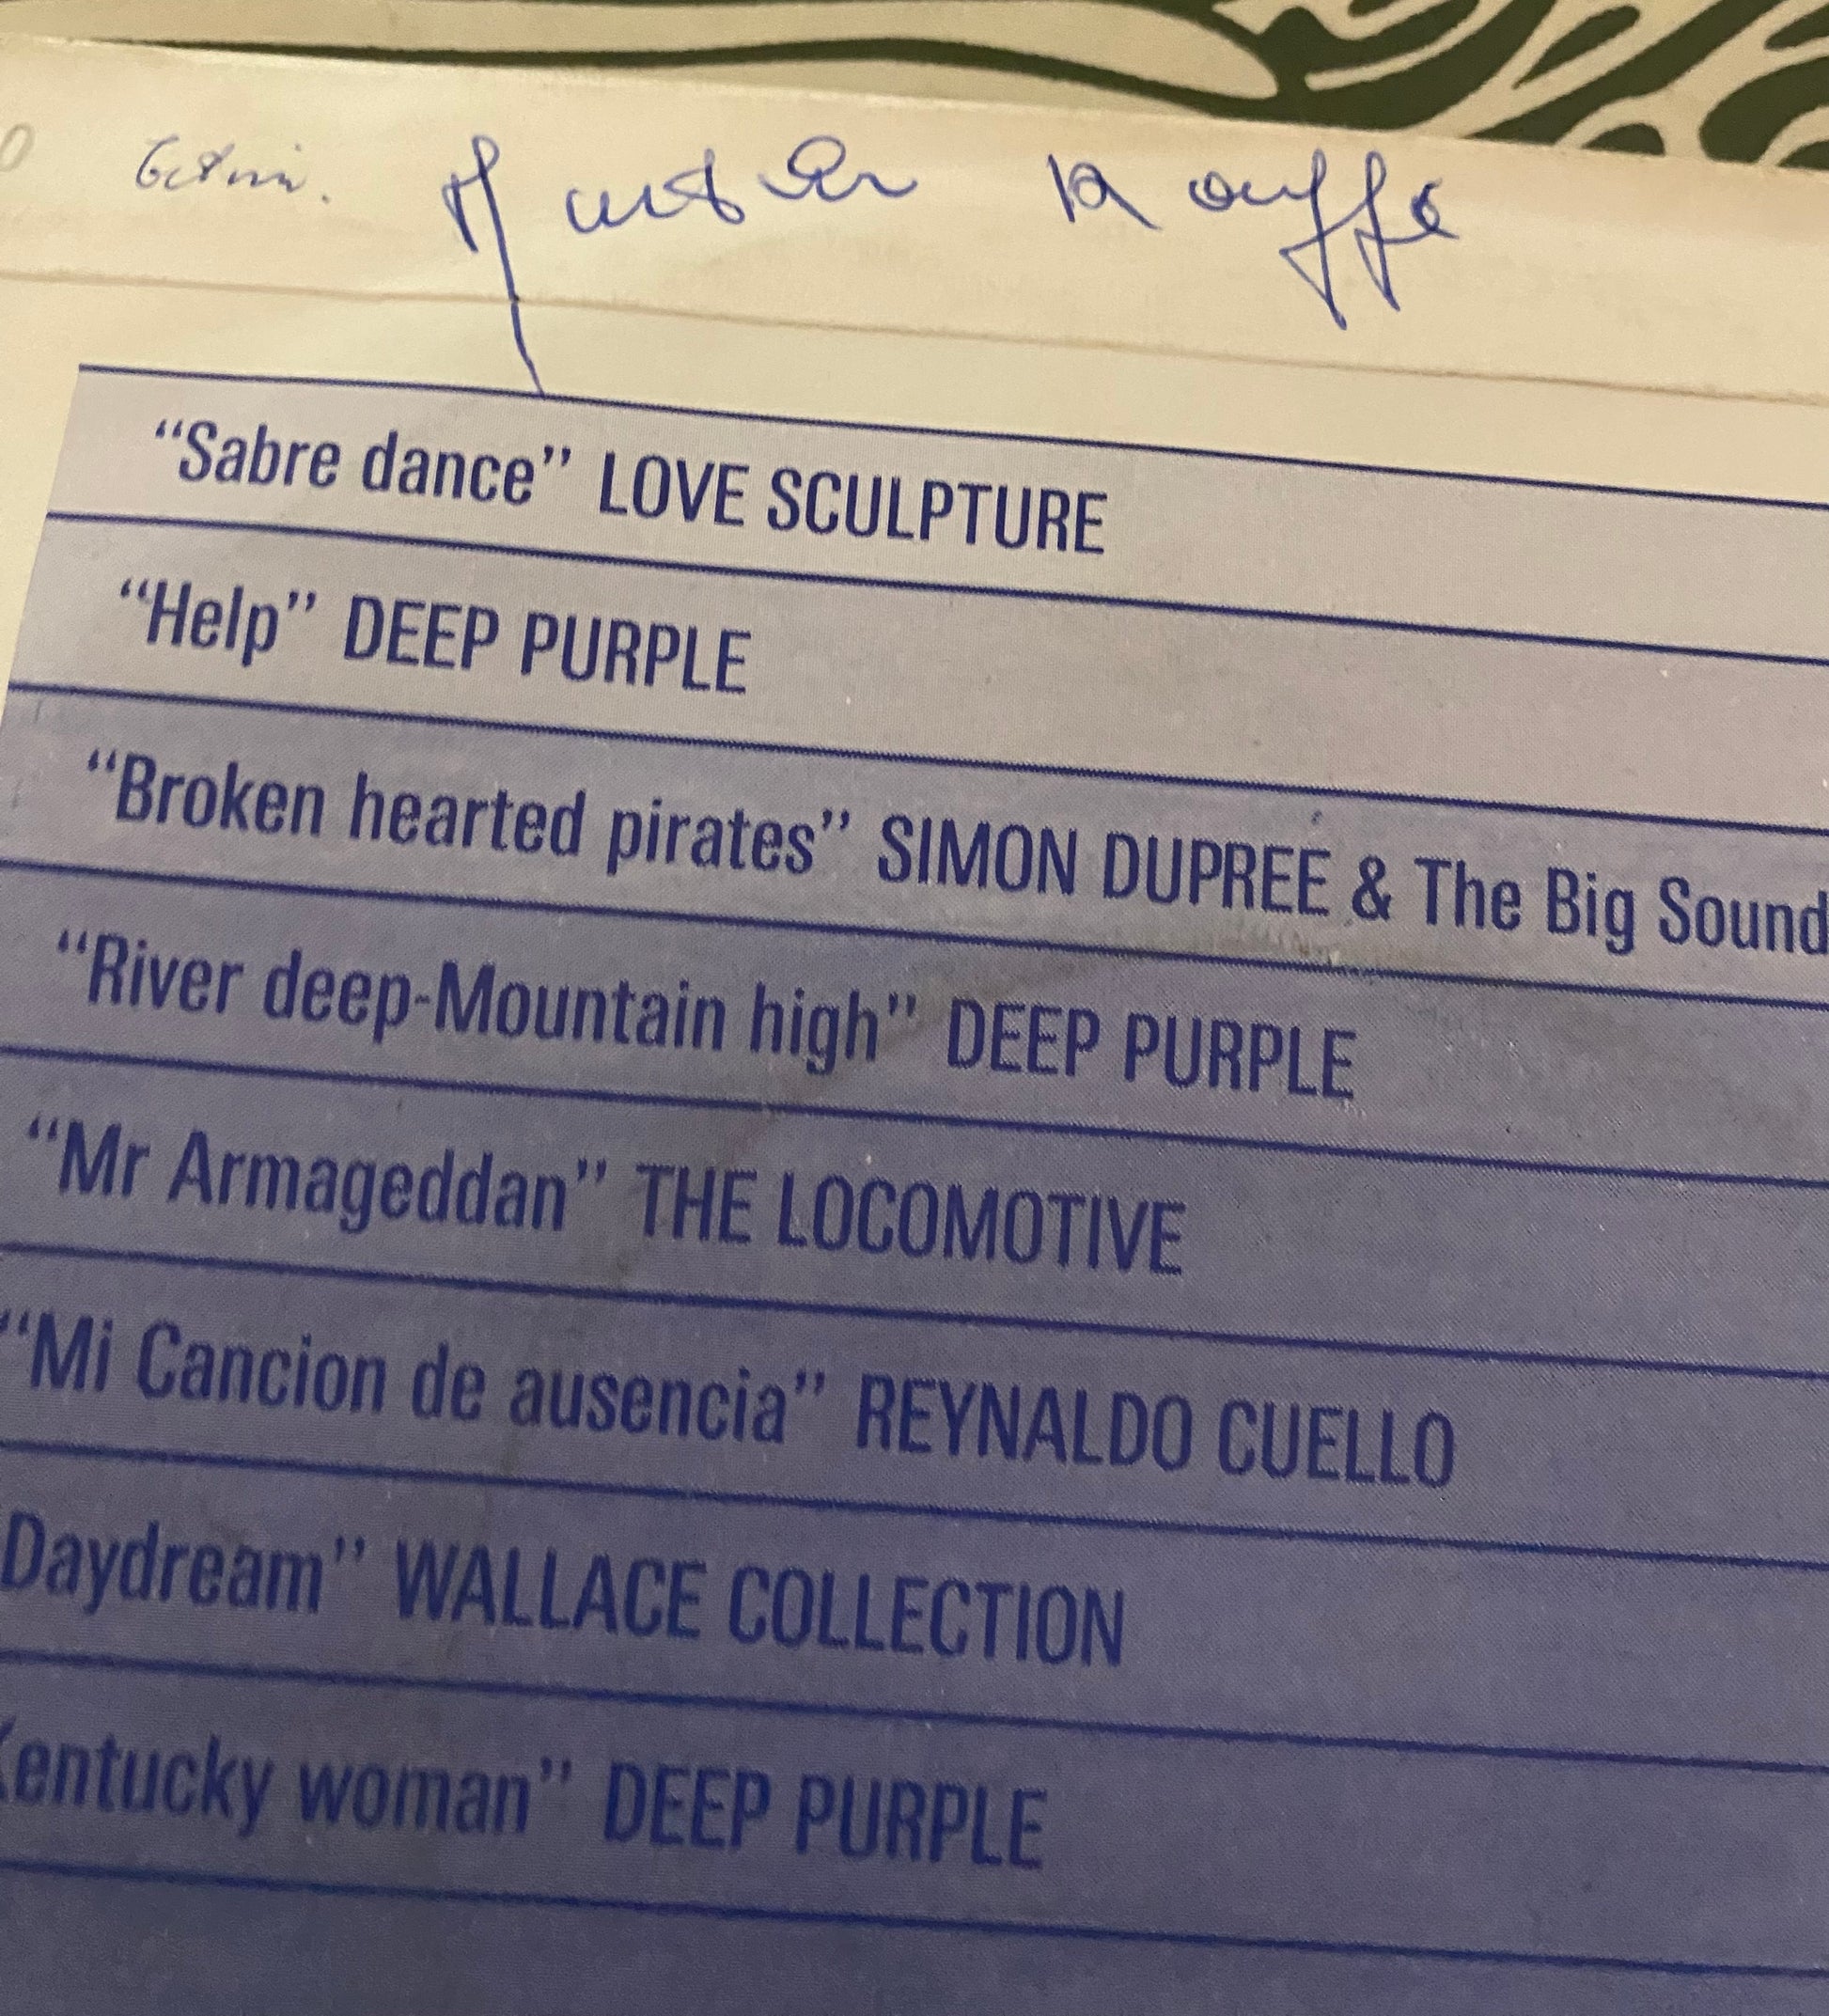 “Sabre dance” LOVE SCULPTURE
“Help” DEEP PURPLE
“Broken hearted pirates” SIMON DUPREE & The Big Sound
“River deep-Mountain high” DEEP PURPLE
“Mr Armageddan” THE LOCOMOTIVE
“Mi Cancion de ausencia” REYNALDO CUELLO
Daydream” WALLACE COLLECTION
Kentucky woman” DEEP PURPLE